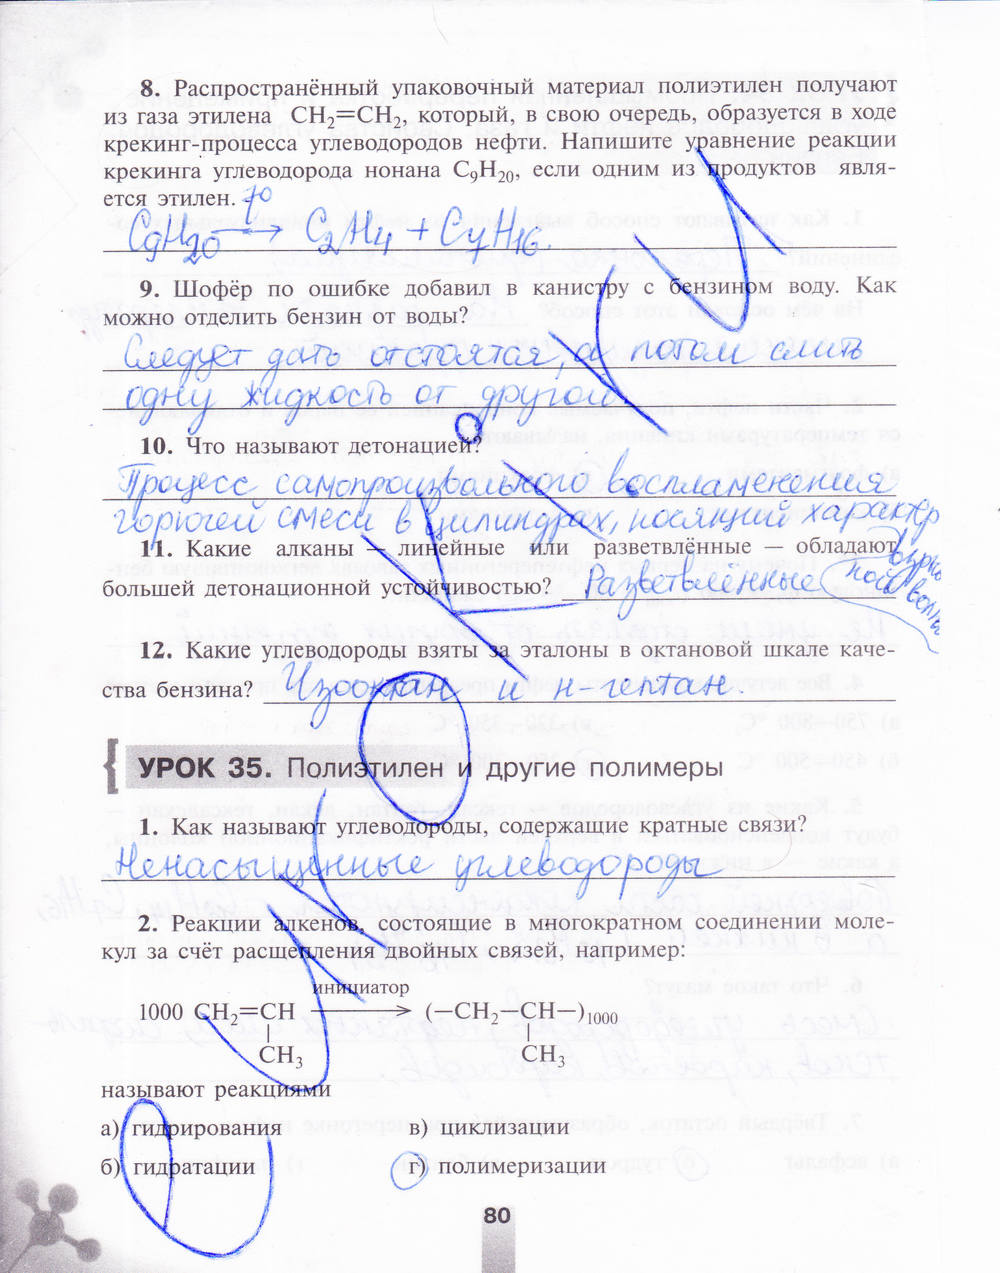 8. Распространённый упаковочный материал полиэтилен получают
из газа этилена CH₂=CH₂, который, в свою очередь, образуется в ходе
крекинг-процесса углеводородов нефти. Напишите уравнение реакции
крекинга углеводорода нонана C₉H₂₀, если одним из продуктов явля-
ется этилен.
C₉H₂₀ →(t°) C₂H₄ + C₇H₁₆.
9. Шофёр по ошибке добавил в канистру с бензином воду. Как
можно отделить бензин от воды?
Следует дать отстоятся, а потом слить
одну жидкость от другой
10. Что называют детонацией?
Процесс самопроизвольного воспламенения
горючей смеси в цилиндрах, носящий характер
взрыв
ной волны
11. Какие алканы — линейные или разветвлённые — обладают
большей детонационной устойчивостью? Разветвлённые
12. Какие углеводороды взяты за эталоны в октановой шкале каче-
ства бензина? Изооктан и н-гептан.
УРОК 35. Полиэтилен и другие полимеры
1. Как называют углеводороды, содержащие кратные связи?
Ненасыщенные углеводороды
2. Реакции алкенов, состоящие в многократном соединении моле-
кул за счёт расщепления двойных связей, например:
инициатор
1000 CH₂=CH → (—CH₂—CH—)₁₀₀₀
CH₃ CH₃
называют реакциями
а) гидрирования в) циклизации
б) гидратации г) полимеризации
80